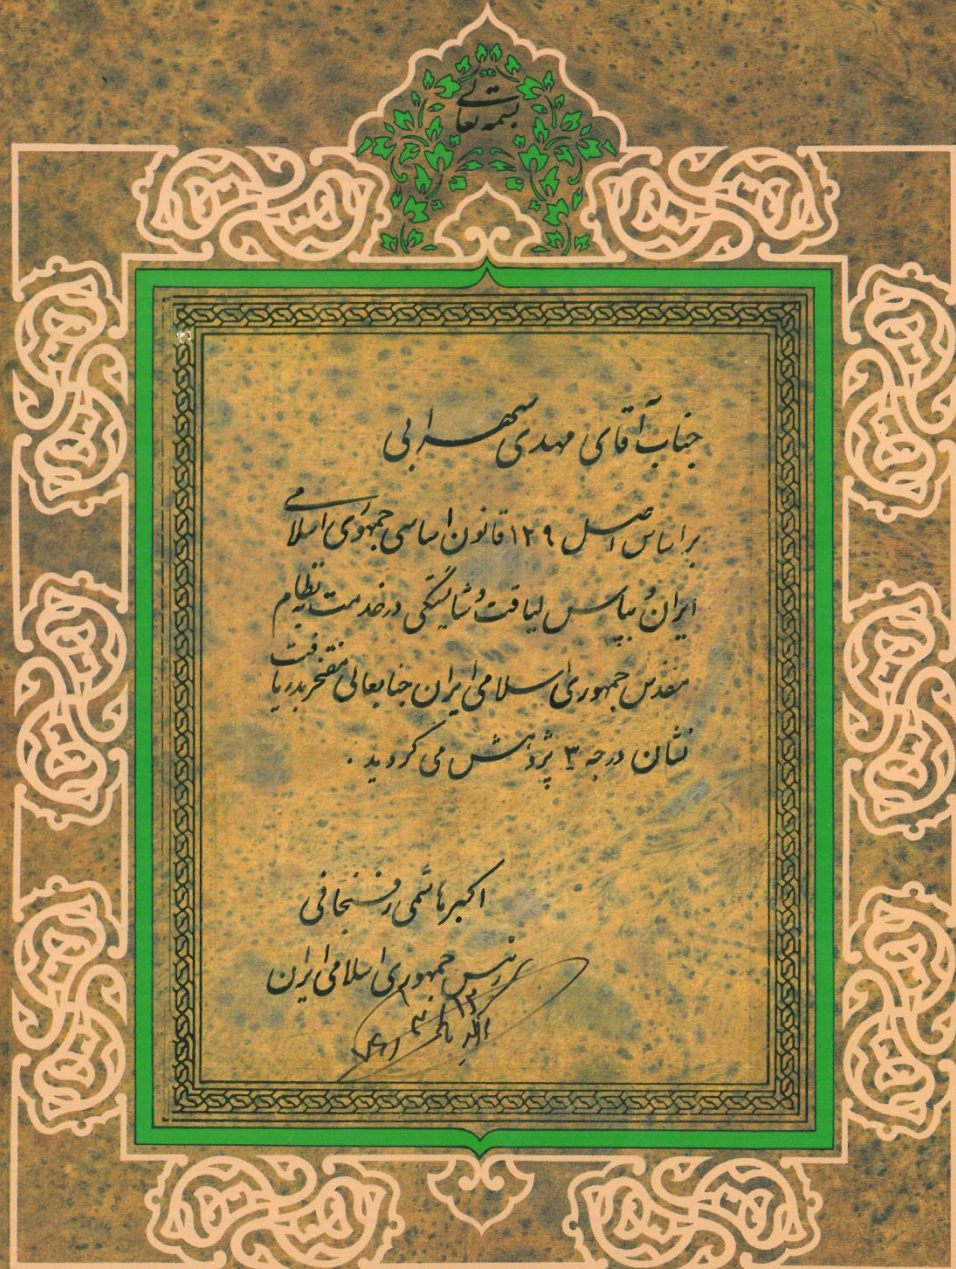 بسمه تعالی
جناب آقای مهدی سهرابی
براساس اصل ۱۲۹ قانون اساسی جمهوری اسلامی
ایران و بپاس لیاقت و شایستگی در خدمت به نظام
مقدس جمهوری اسلامی ایران جنابعالی مفتخر بدریافت
نشان درجه ۳ پژوهش می گردید .
اکبر هاشمی رفسنجانی
رئیس جمهوری اسلامی ایران